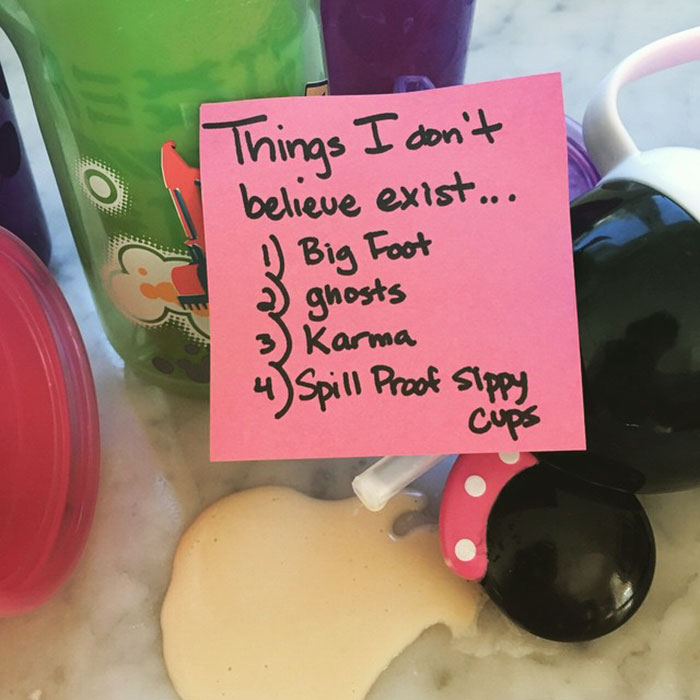 Things I don't
believe exist...
1) Big Foot
2) ghosts
3) Karma
4) Spill Proof Sippy
cups